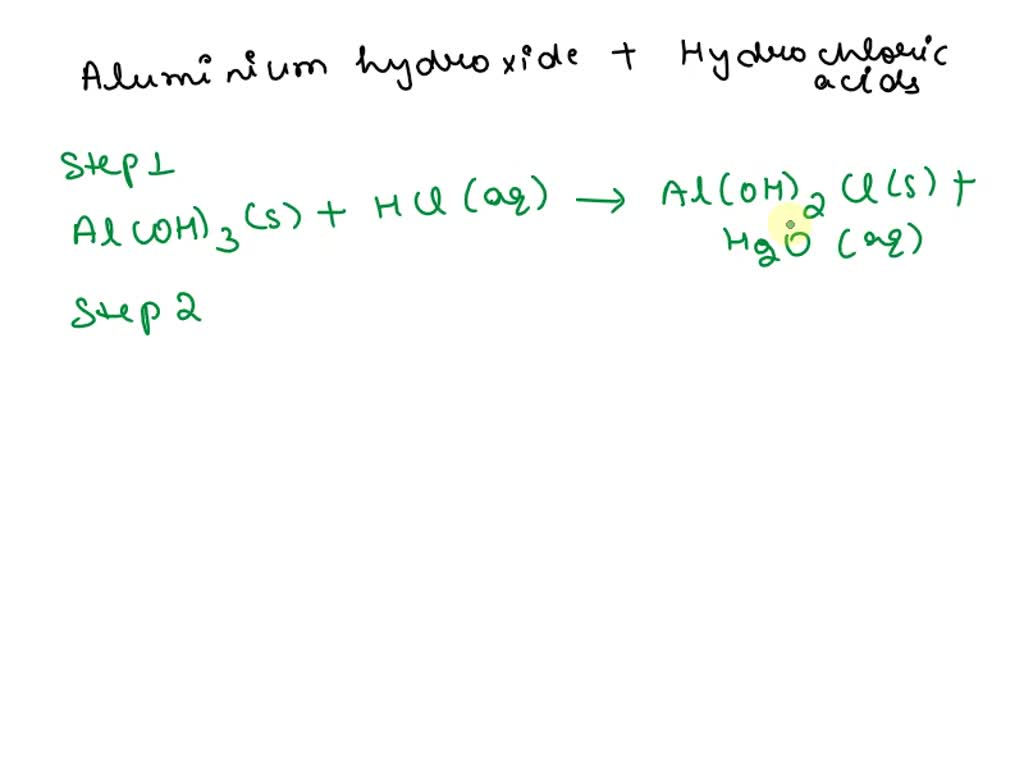 Aluminium hydroxide + Hydrochloric
acids
Step 1
Al(OH)3 (s) + HCl (aq) → Al(OH)2 Cl(s) +
H2O (aq)
Step 2